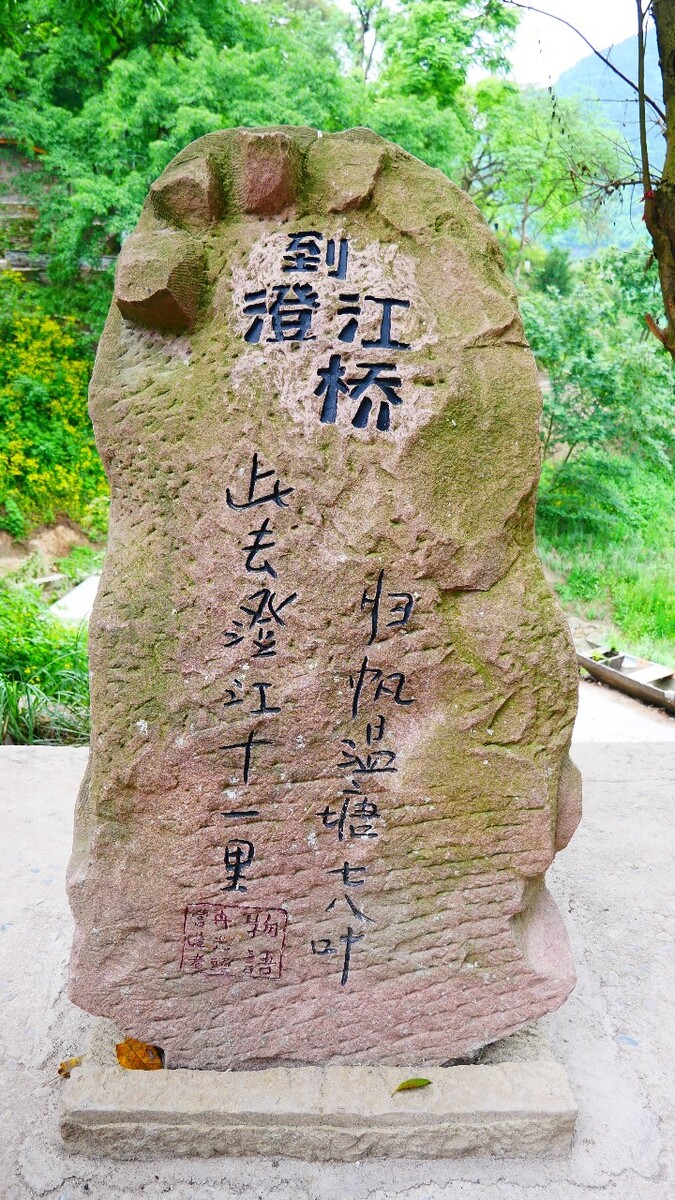 到
澄江
桥
此去澄江十一里
归帆温塘七八叶